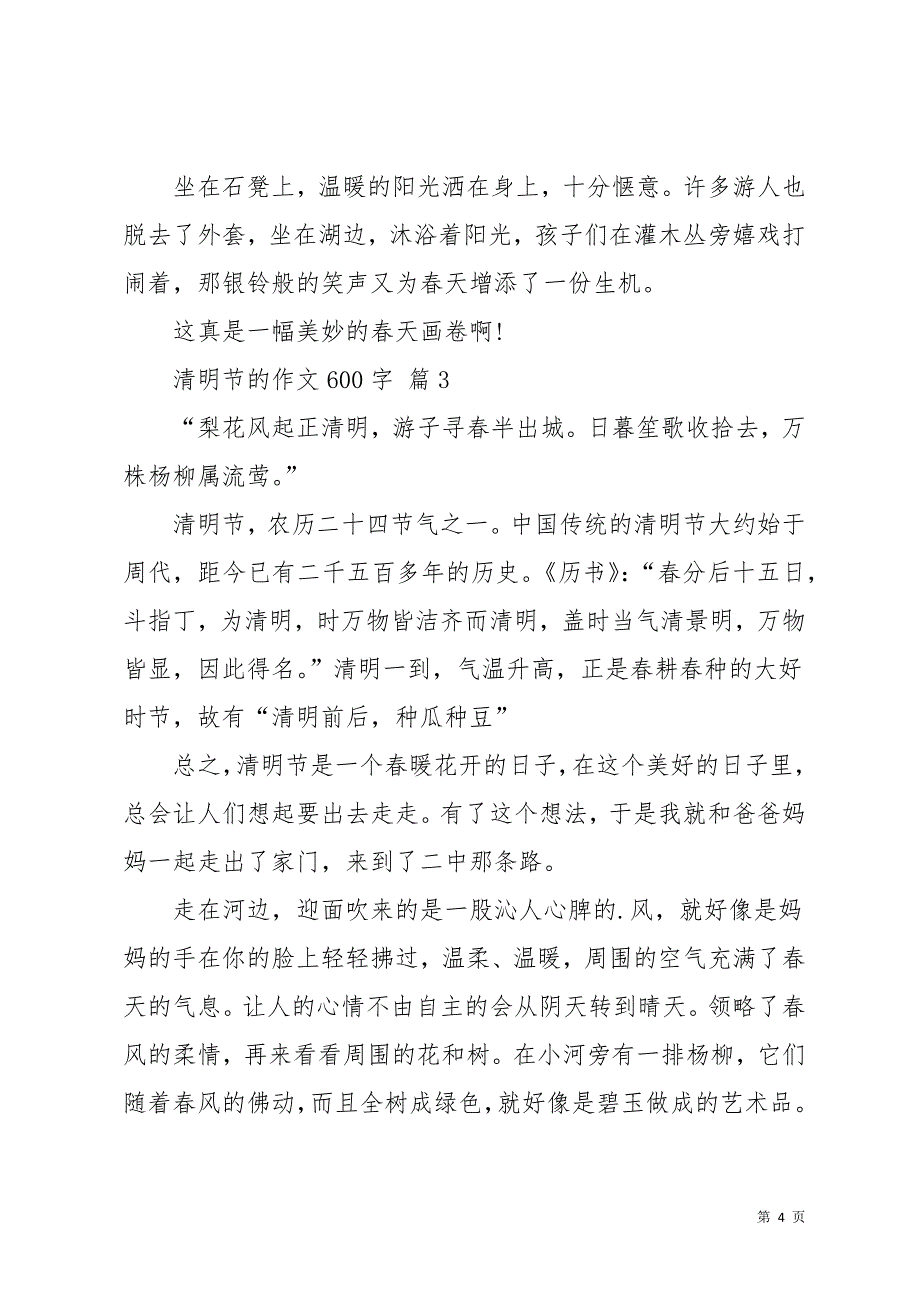 坐在石凳上，温暖的阳光洒在身上，十分惬意。许多游人也
脱去了外套，坐在湖边，沐浴着阳光，孩子们在灌木丛旁嬉戏打
闹着，那银铃般的笑声又为春天增添了一份生机。
这真是一幅美妙的春天画卷啊!
清明节的作文600字 篇3
“梨花风起正清明，游子寻春半出城。日暮笙歌收拾去，万
株杨柳属流莺。”
清明节，农历二十四节气之一。中国传统的清明节大约始于
周代，距今已有二千五百多年的历史。《历书》：“春分后十五日，
斗指丁，为清明，时万物皆洁齐而清明，盖时当气清景明，万物
皆显，因此得名。”清明一到，气温升高，正是春耕春种的大好
时节，故有“清明前后，种瓜种豆”
总之，清明节是一个春暖花开的日子，在这个美好的日子里，
总会让人们想起要出去走走。有了这个想法，于是我就和爸爸妈
妈一起走出了家门，来到了二中那条路。
走在河边，迎面吹来的是一股沁人心脾的.风，就好像是妈
妈的手在你的脸上轻轻拂过，温柔、温暖，周围的空气充满了春
天的气息。让人的心情不由自主的会从阴天转到晴天。领略了春
风的柔情，再来看看周围的花和树。在小河旁有一排杨柳，它们
随着春风的佛动，而且全树成绿色，就好像是碧玉做成的艺术品。
第 4 页